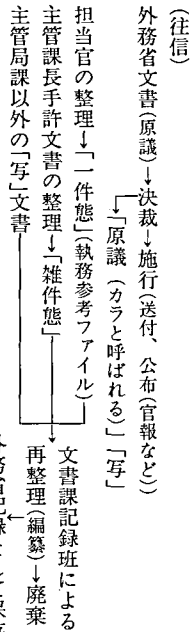 (往信)
外務省文書(原議)→決裁→施行(送付、公布(官報など))
→「原議(カラと呼ばれる)」「写」
担当官の整理→「一件態」(執務参考ファイル)
主管課長手許文書の整理→「雑件態」
主管局課以外の「写」文書
文書課記録班による
再整理(編纂)→廃棄